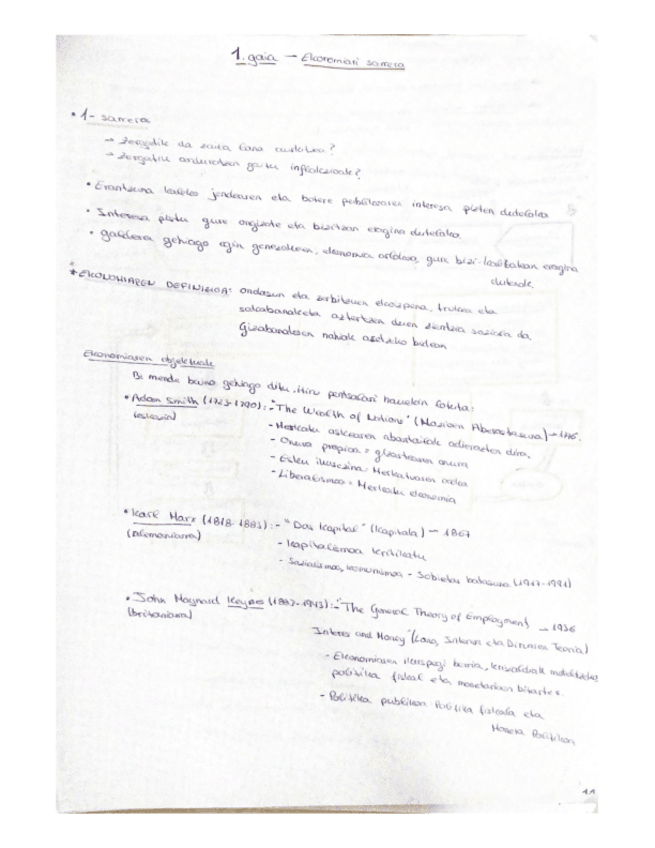 1. gaia — Ekonomiari sarrera
• 1- sarrera
→ Zergatik da zaila lana
→ Zergatik arduratzen gaitu inflazioak?
• Erantzuna jendearen eta botere publikoaren interesa pizten dutelako
• Interesa piztu gure ongizate eta bizitzan eragina dutelako
• galdera gehiago egin genezakeen, ekonomia gure bizi-kalitatean eragina
dutenak.
* EKONOMIAREN DEFINIZIOA: ondasun eta zerbitzuen ekoizpena, trukea eta
aztertzen duen zientzia soziala da,
Gizabanakoen nahiak asetzeko bidean
Ekonomiaren objektuak
Bi mende baino gehiago ditu, hiru pentsalari hauetan
• Adam Smith (1723-1790): - "The Wealth of Nations" (Nazioen Aberastasuna) → 1776.
(eskozia) - Merkatu askearen abantailak adierazten dira.
- Onura propioa = guztiaren onura
- Esku ikusezina: Merkatuaren
- Liberalismoa = Merkatu ekonomia
• Karl Marx (1818-1883): - "Das Kapital" (Kapitala) → 1867
(Alemaniarra) - Kapitalismoa kritikatu
- Sozialismoa, komunismoa - Sobietar batasuna (1917-1991)
• John Maynard Keynes (1883-1943): - "The General Theory of Employment → 1936
(britaniarra) Interes and Money" (Lana, Interes eta Diruaren Teoria)
- Ekonomiaren ikuspegi berria,
politika fiskal eta monetarioen bitartez.
- Politika publikoa: Politika fiskala eta
Politikan